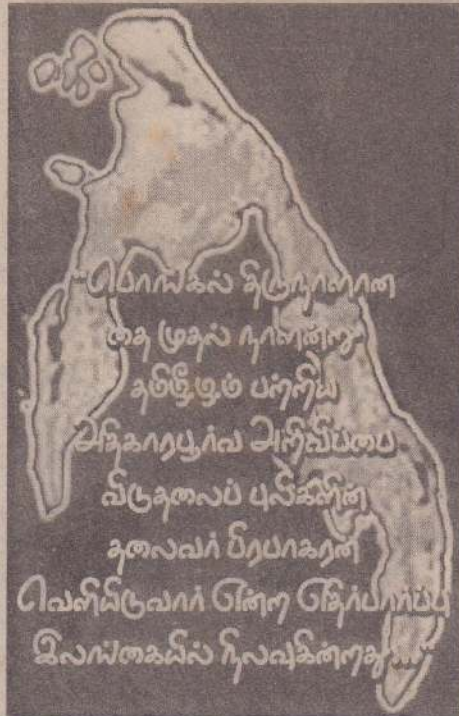 "பொங்கல் திருநாளான
தை முதல் நாளன்று
தமிழீழம் பற்றிய
அதிகாரபூர்வ அறிவிப்பை
விடுதலைப் புலிகளின்
தலைவர் பிரபாகரன்
வெளியிடுவார் என்ற எதிர்பார்ப்பு
இலங்கையில் நிலவுகின்றது...."